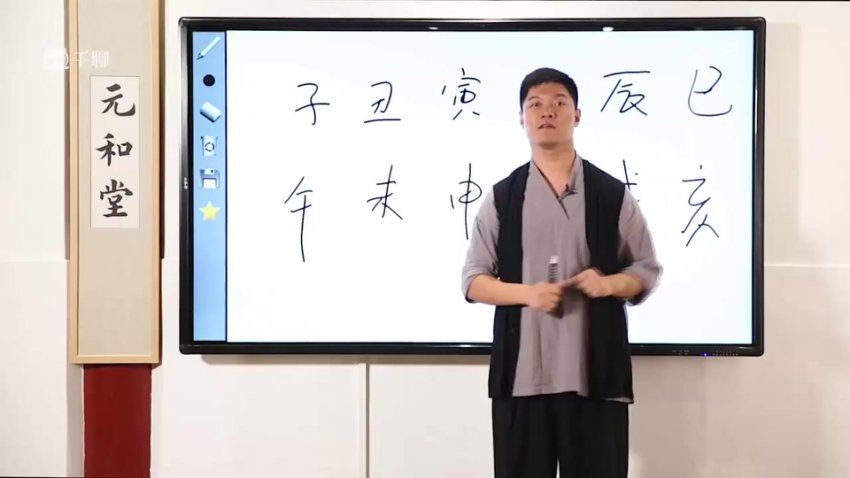 千聊
元和堂
子丑寅 辰巳
午未申 亥